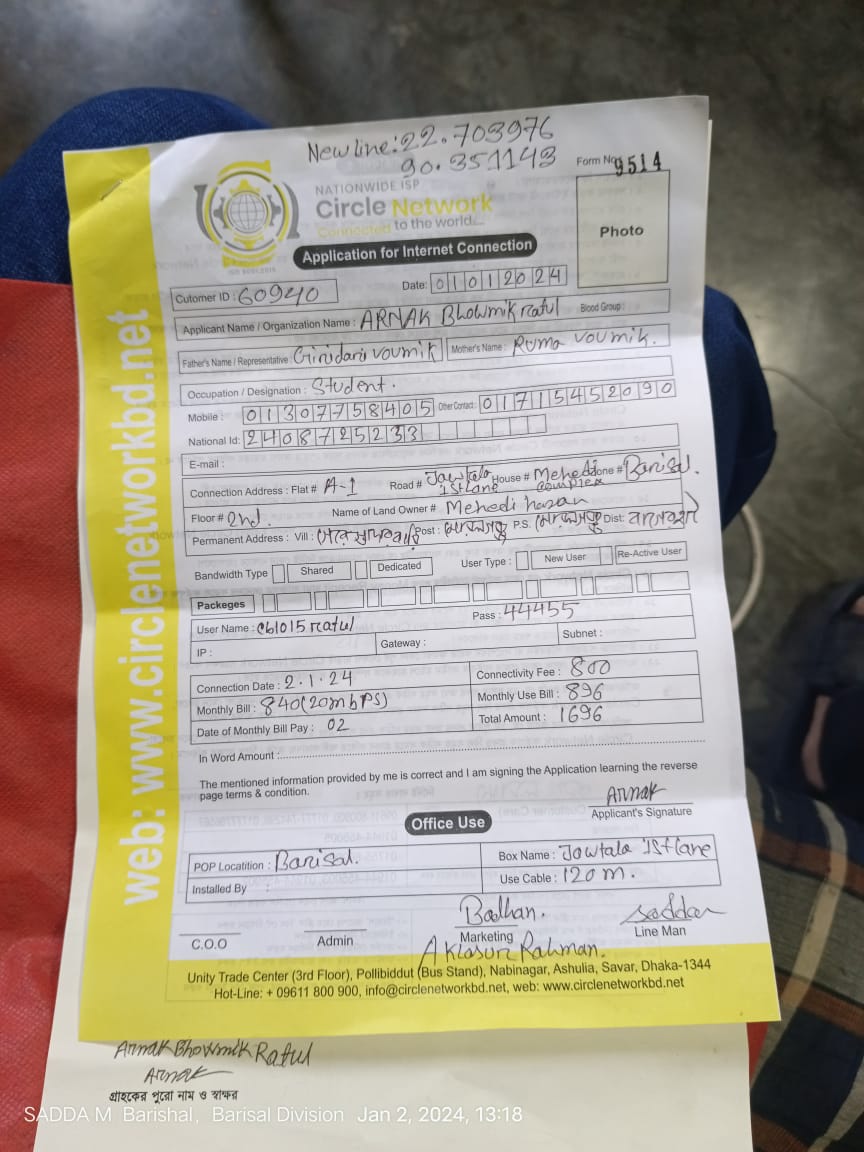 New line: 22.703976
90.351143
Form No 9514
NATIONWIDE ISP
Circle Network
Connected to the world...
Application for Internet Connection
Photo
Cutomer ID : 60940
Date: 01012024
Applicant Name / Organization Name : ARNAK Bhowmik ratul Blood Group :
Father's Name / Representative : Giridari voumik Mother's Name : Ruma voumik.
Occupation / Designation : Student.
Mobile : 01307758405 Other Contact : 01715452090
National Id: 2408725233
E-mail :
Connection Address : Flat # A-1 Road # Jawtala 1st Lane House # Mehedi complex Zone # Barisal.
Floor # 2nd. Name of Land Owner # Mehedi hasan
Permanent Address : Vill : Post : P.S. Dist:
Bandwidth Type Shared Dedicated User Type : New User Re-Active User
Packeges
User Name : cb1015ratul Pass : 44455
IP : Gateway : Subnet :
Connection Date : 2.1.24 Connectivity Fee : 800
Monthly Bill : 840(20mbPS) Monthly Use Bill : 896
Date of Monthly Bill Pay : 02 Total Amount : 1696
In Word Amount :
The mentioned information provided by me is correct and I am signing the Application learning the reverse
page terms & condition.
Arnak
Applicant's Signature
Office Use
POP Locatition : Barisal. Box Name : Jowtala 1st Lane
Installed By : Use Cable : 120 m.
Bodhan. Saddam
C.O.O Admin Marketing Line Man
Aklasur Rahman.
Unity Trade Center (3rd Floor), Pollibiddut (Bus Stand), Nabinagar, Ashulia, Savar, Dhaka-1344
Hot-Line: + 09611 800 900, info@circlenetworkbd.net, web: www.circlenetworkbd.net
web: www.circlenetworkbd.net
Arnak Bhowmik Ratul
Arnak
গ্রাহকের পুরো নাম ও স্বাক্ষর
SADDA M Barishal, Barisal Division Jan 2, 2024, 13:18